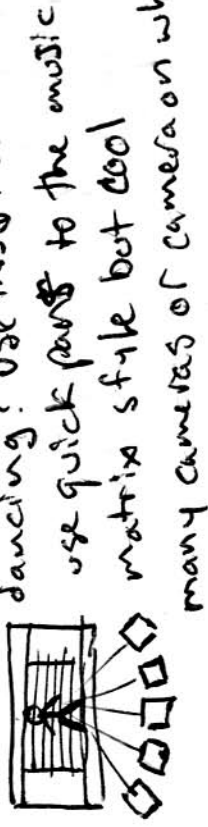 dancing! use
use quick pans to the music
matrix style but cool
many cameras or camera on